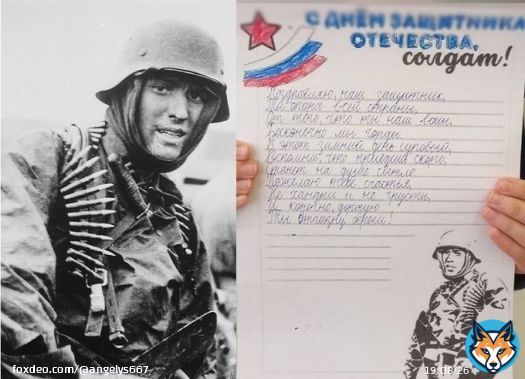 С ДНЁМ ЗАЩИТНИКА
ОТЕЧЕСТВА,
солдат!
Поздравляю, наш защитник,
Ты опора всей страны,
От того, что ты наш воин,
Бесконечно мы горды.
В этот зимний день суровый,
Вспомни, что придёт скоро,
Станет на душе светло
Пожелаю тебе счастья,
Не хандри и не грусти,
И, конечно,
Ты отчизну береги!
foxdeo.com/@angelys667
19.08.26